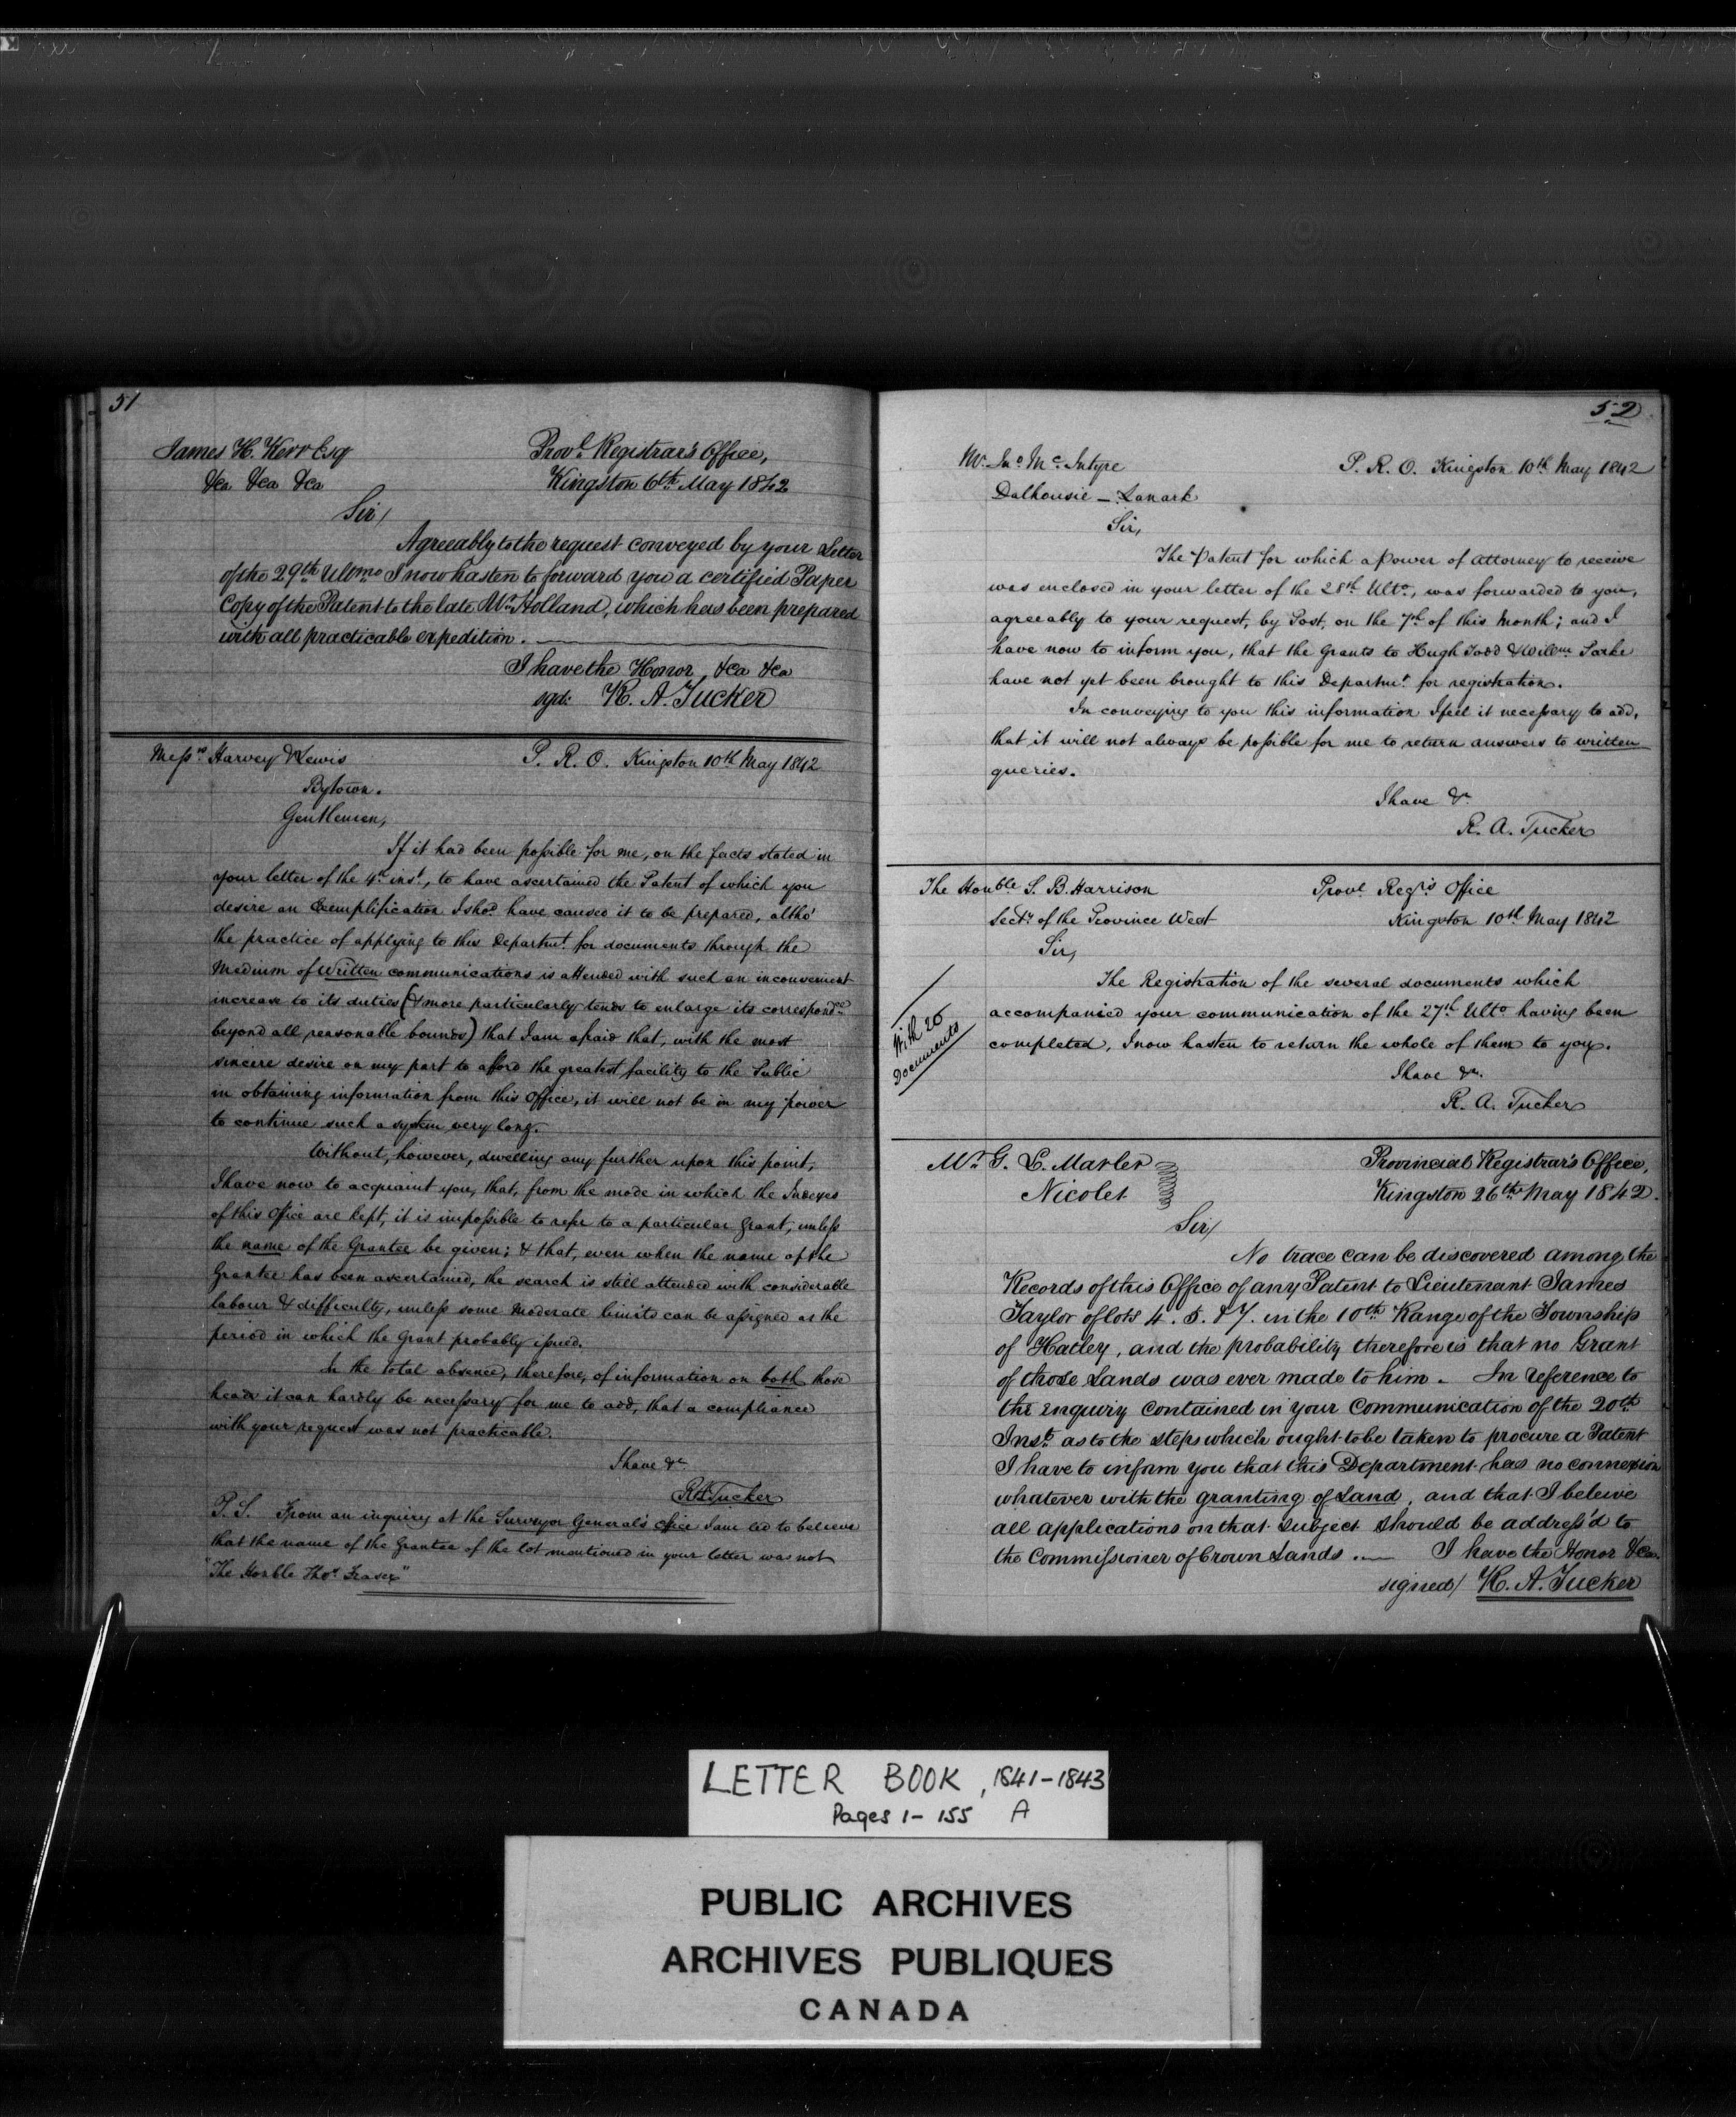 51
James H. Kerr Esq
&ca &ca &ca
Provl. Registrar's Office,
Kingston 6th May 1842
Sir/
Agreeably to the request conveyed by your Letter
of the 29th Ultmo I now hasten to forward you a certified Paper
Copy of the Patent to the late Mr. Holland, which has been prepared
with all practicable expedition.
I have the Honor &ca &ca
sgd: R. A. Tucker
Messrs Harvey & Lewis
Bytown.
P. R. O. Kingston 10th May 1842
Gentlemen,
If it had been possible for me, on the facts stated in
your letter of the 4th inst, to have ascertained the Patent of which you
desire an Exemplification I shod. have caused it to be prepared, altho'
the practice of applying to this Departmt. for documents through the
Medium of Written communications is attended with such an inconvenient
increase to its duties (& more particularly tends to enlarge its correspondce
beyond all reasonable bounds) that I am afraid that, with the most
sincere desire on my part to afford the greatest facility to the Public
in obtaining information from this Office, it will not be in my power
to continue such a system very long.
Without, however, dwelling any further upon this point,
I have now to acquaint you, that, from the mode in which the Indexes
of this Office are kept, it is impossible to refer to a particular Grant, unless
the name of the Grantee be given; & that, even when the name of the
Grantee has been ascertained, the search is still attended with considerable
labour & difficulty, unless some Moderate limits can be assigned as the
period in which the Grant probably issued.
In the total absence, therefore, of information on both those
heads it can hardly be necessary for me to add, that a compliance
with your request was not practicable.
I have &c
R A Tucker
P. S. From an inquiry at the Surveyor General's office I am led to believe
that the name of the Grantee of the lot mentioned in your letter was not
"The Honble Thos. Fraser"
52
Mr. Jno. McIntyre
Dalhousie – Lanark
P. R. O. Kingston 10th May 1842
Sir,
The Patent for which a Power of Attorney to receive
was enclosed in your letter of the 28th Ulto, was forwarded to you,
agreeably to your request, by Post, on the 7th of this Month; and I
have now to inform you, that the Grants to Hugh Todd & Willm
have not yet been brought to this Departmt. for registration.
In conveying to you this information I feel it necessary to add,
that it will not always be possible for me to return answers to written
queries.
I have &c
R. A. Tucker
The Honble. S. B. Harrison
Secty. of the Province West
Provl Regrs Office
Kingston 10th May 1842
Sir,
The Registration of the several documents which
accompanied your communication of the 27th Ulto having been
completed, I now hasten to return the whole of them to you.
With 20
Documents
I have &c.
R. A. Tucker
Mr. G. L. Marler
Nicolet
Provincial Registrar's Office,
Kingston 26th May 1842.
Sir/
No trace can be discovered among the
Records of this Office of any Patent to Lieutenant James
Taylor of lots 4. 5. & 7. in the 10th Range of the Township
of Hatley, and the probability therefore is that no Grant
of those Lands was ever made to him. In reference to
the enquiry contained in your Communication of the 20th
Inst. as to the steps which ought to be taken to procure a Patent
I have to inform you that this Department has no connexion
whatever with the granting of Land, and that I beleive
all applications on that subject should be address'd to
the Commissioner of Crown Lands. I have the Honor &ca.
signed/ R. A. Tucker
LETTER BOOK, 1841-1843
Pages 1 - 155 A
PUBLIC ARCHIVES
ARCHIVES PUBLIQUES
CANADA